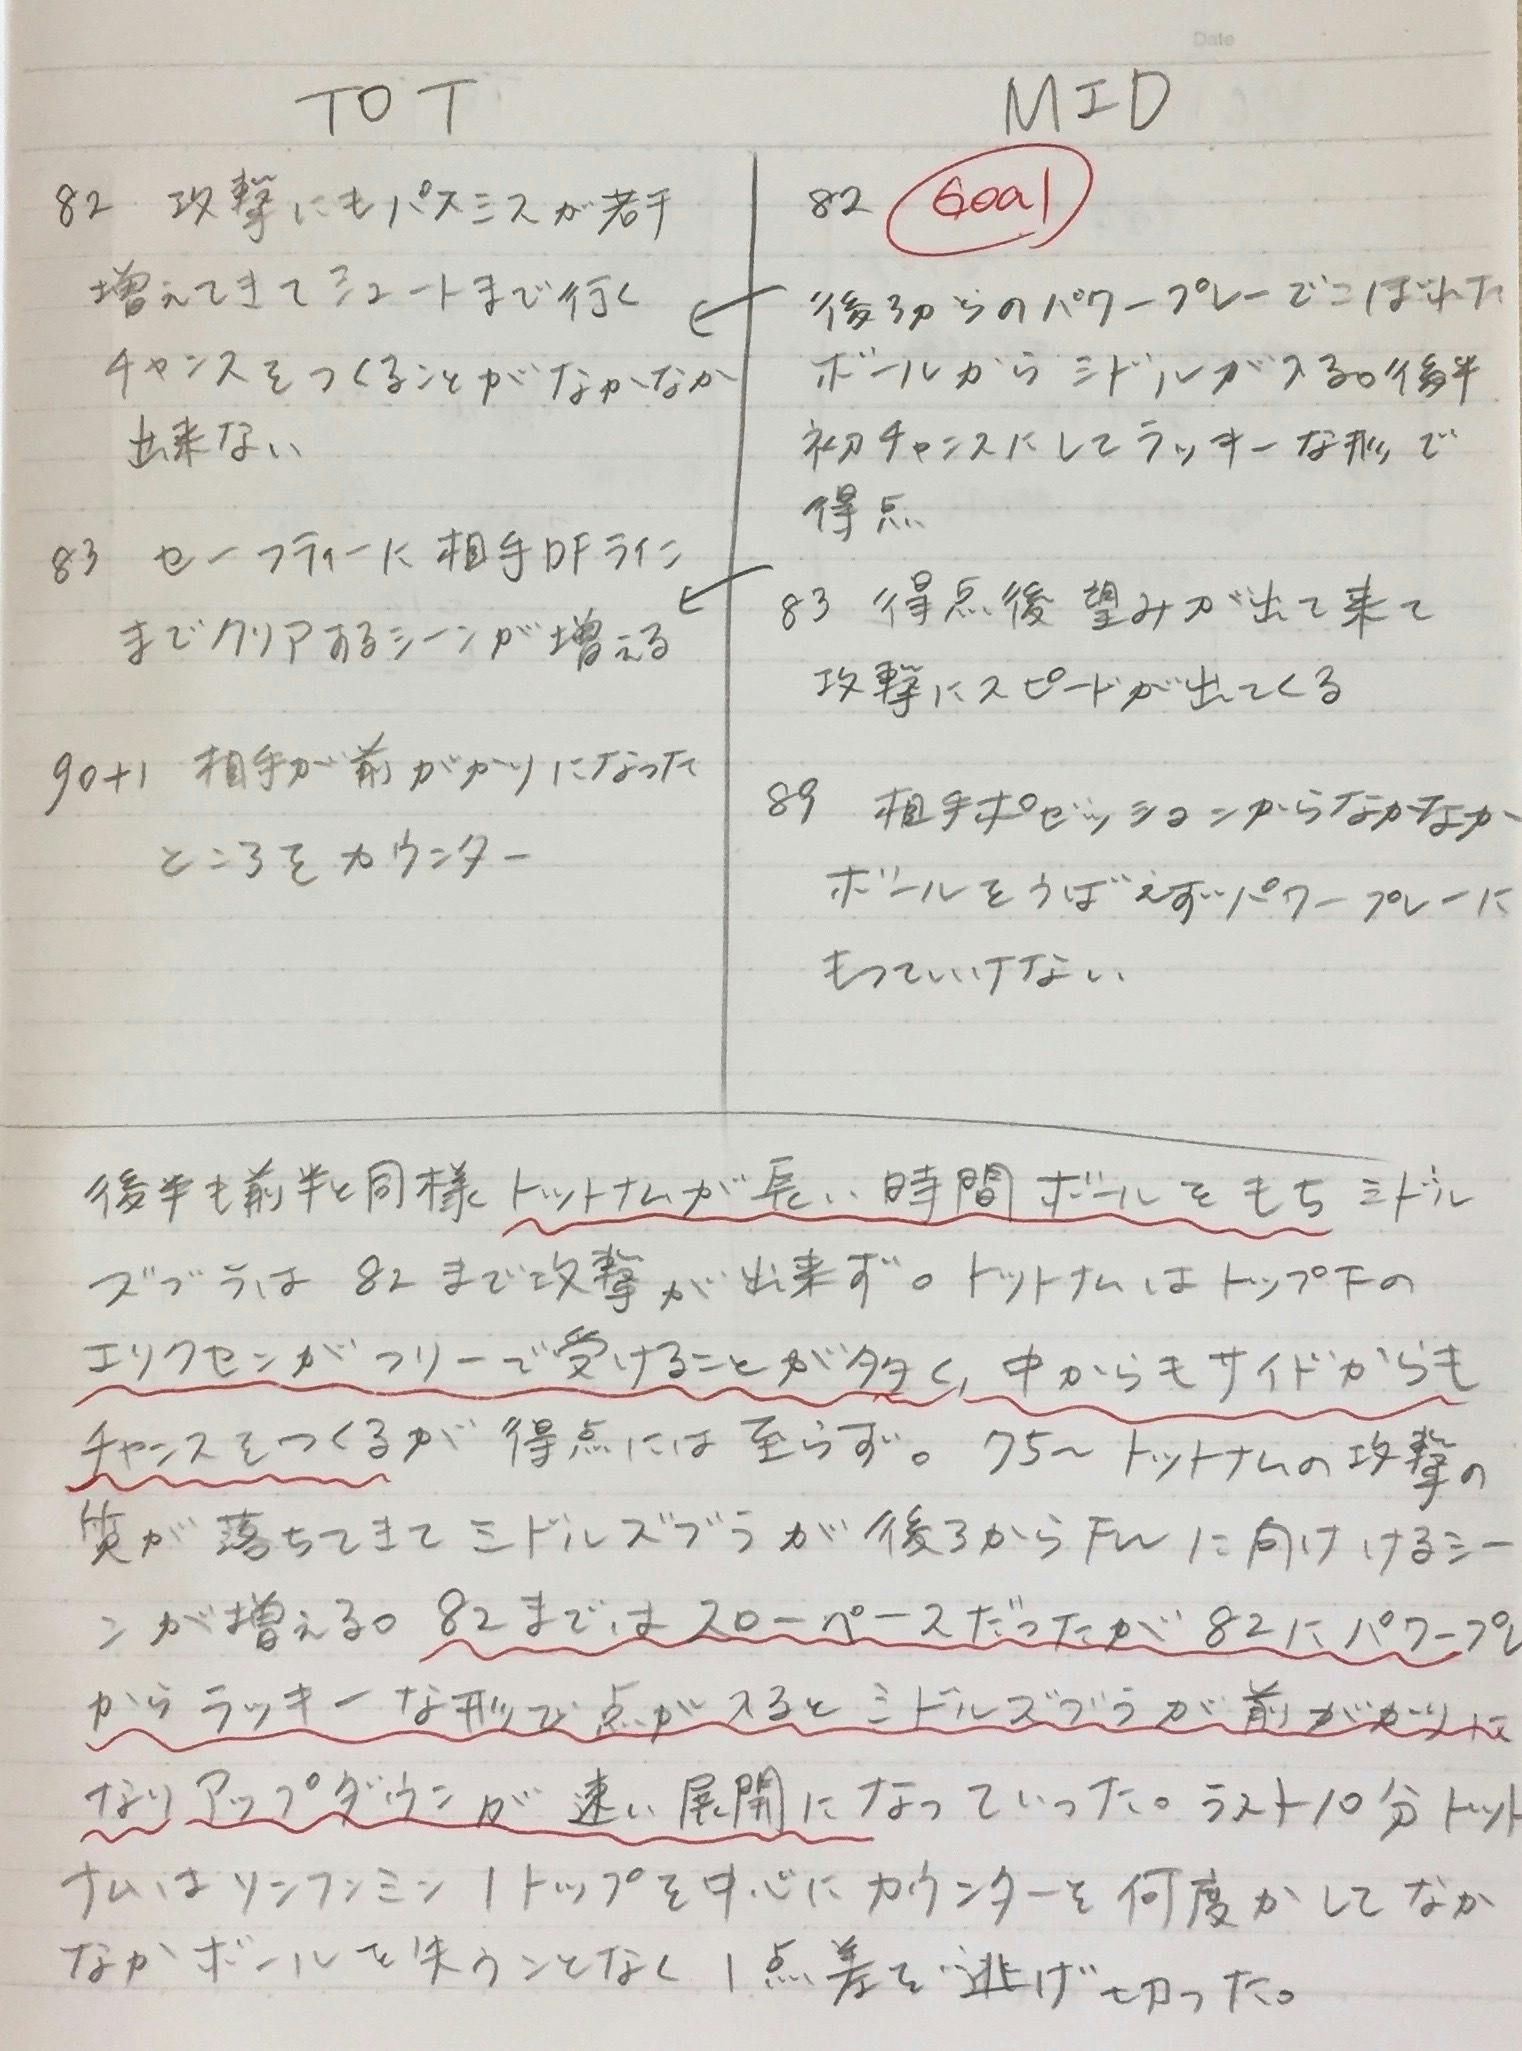 Date
TOT
82 攻撃にもパスミスが若干
増えてきてシュートまで行く
チャンスをつくることがなかなか
出来ない
83 セーフティーに相手DFライン
までクリアするシーンが増える
90+1 相手が前がかりになった
ところをカウンター
MID
82 Goal
後ろからのパワープレーでこぼれた
ボールからミドルが入る。後半
初チャンスにしてラッキーな形で
得点
83 得点後望みが出て来て
攻撃にスピードが出てくる
89 相手ポゼッションからなかなか
ボールをうばえずパワープレーに
もっていけない
後半も前半と同様トットナムが長い時間ボールをもちミドル
ズブラは82まで攻撃が出来ず。トットナムはトップ下の
エリクセンがフリーで受けることが多く、中からもサイドからも
チャンスをつくるが得点には至らず。75~トットナムの攻撃の
質が落ちてきてミドルズブラが後ろからFWに向けけるシー
ンが増える。82まではスローペースだったが82にパワープレ
からラッキーな形で点が入るとミドルズブラが前がかりに
なりアップダウンが速い展開になっていった。ラスト10分トット
ナムはソンフンミン1トップを中心にカウンターを何度かしてなか
なかボールを失うことなく1点差を逃げ切った。